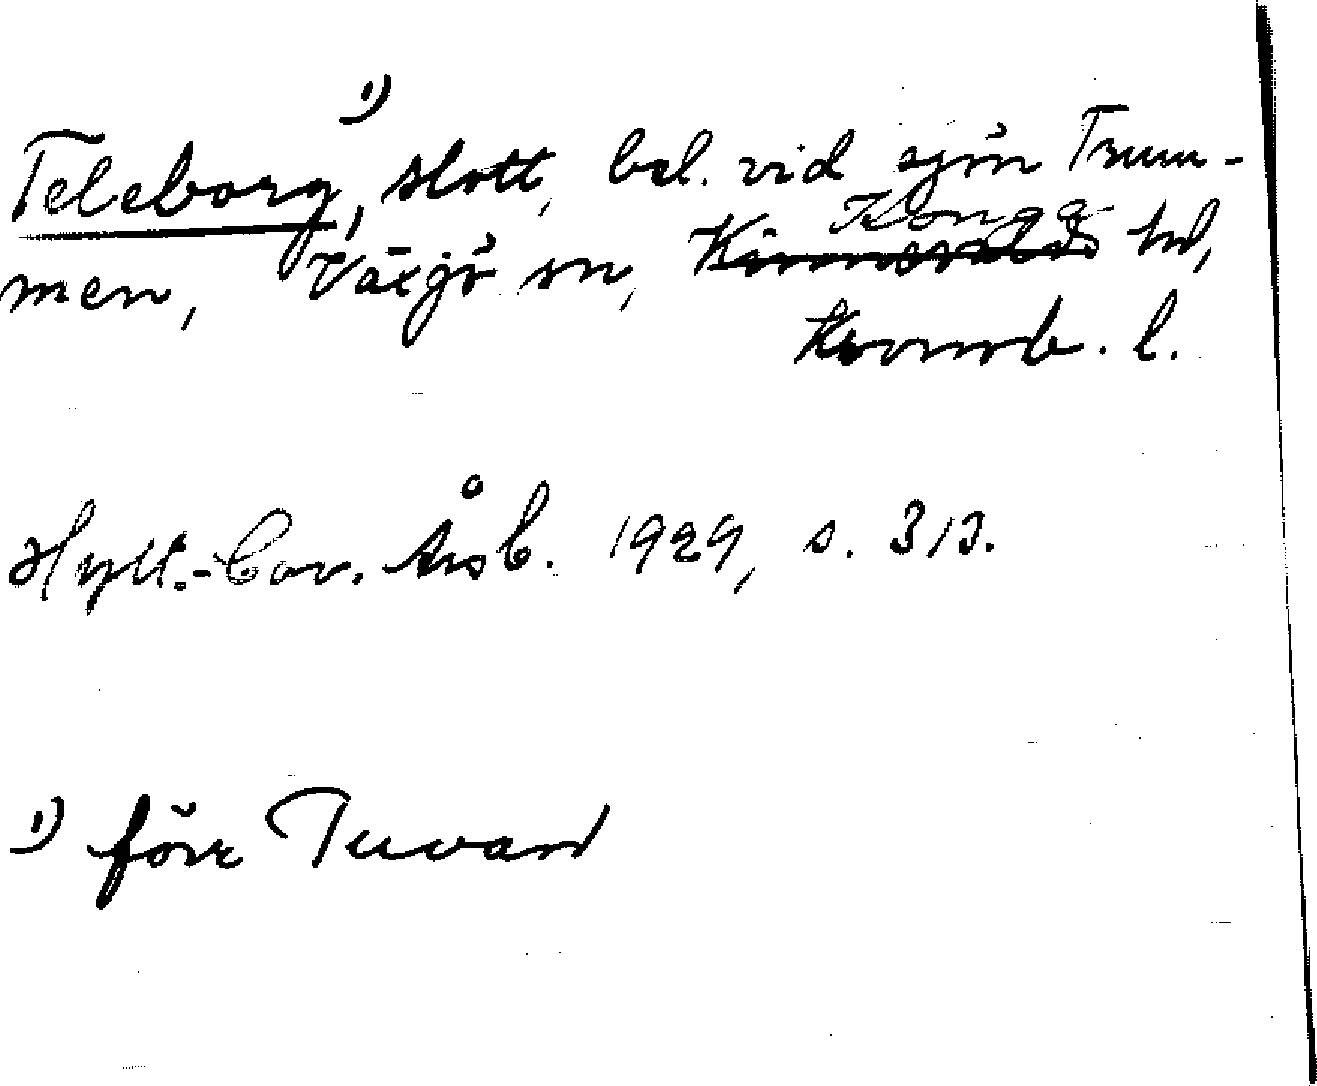 Teleborg,¹⁾ slott, bel. vid sjön Trum-
men, Växjö sn, Konga hd,
Kronob. l.
Hylt.-Cav. Årsb. 1929, s. 313.
¹⁾ förr Tuvan